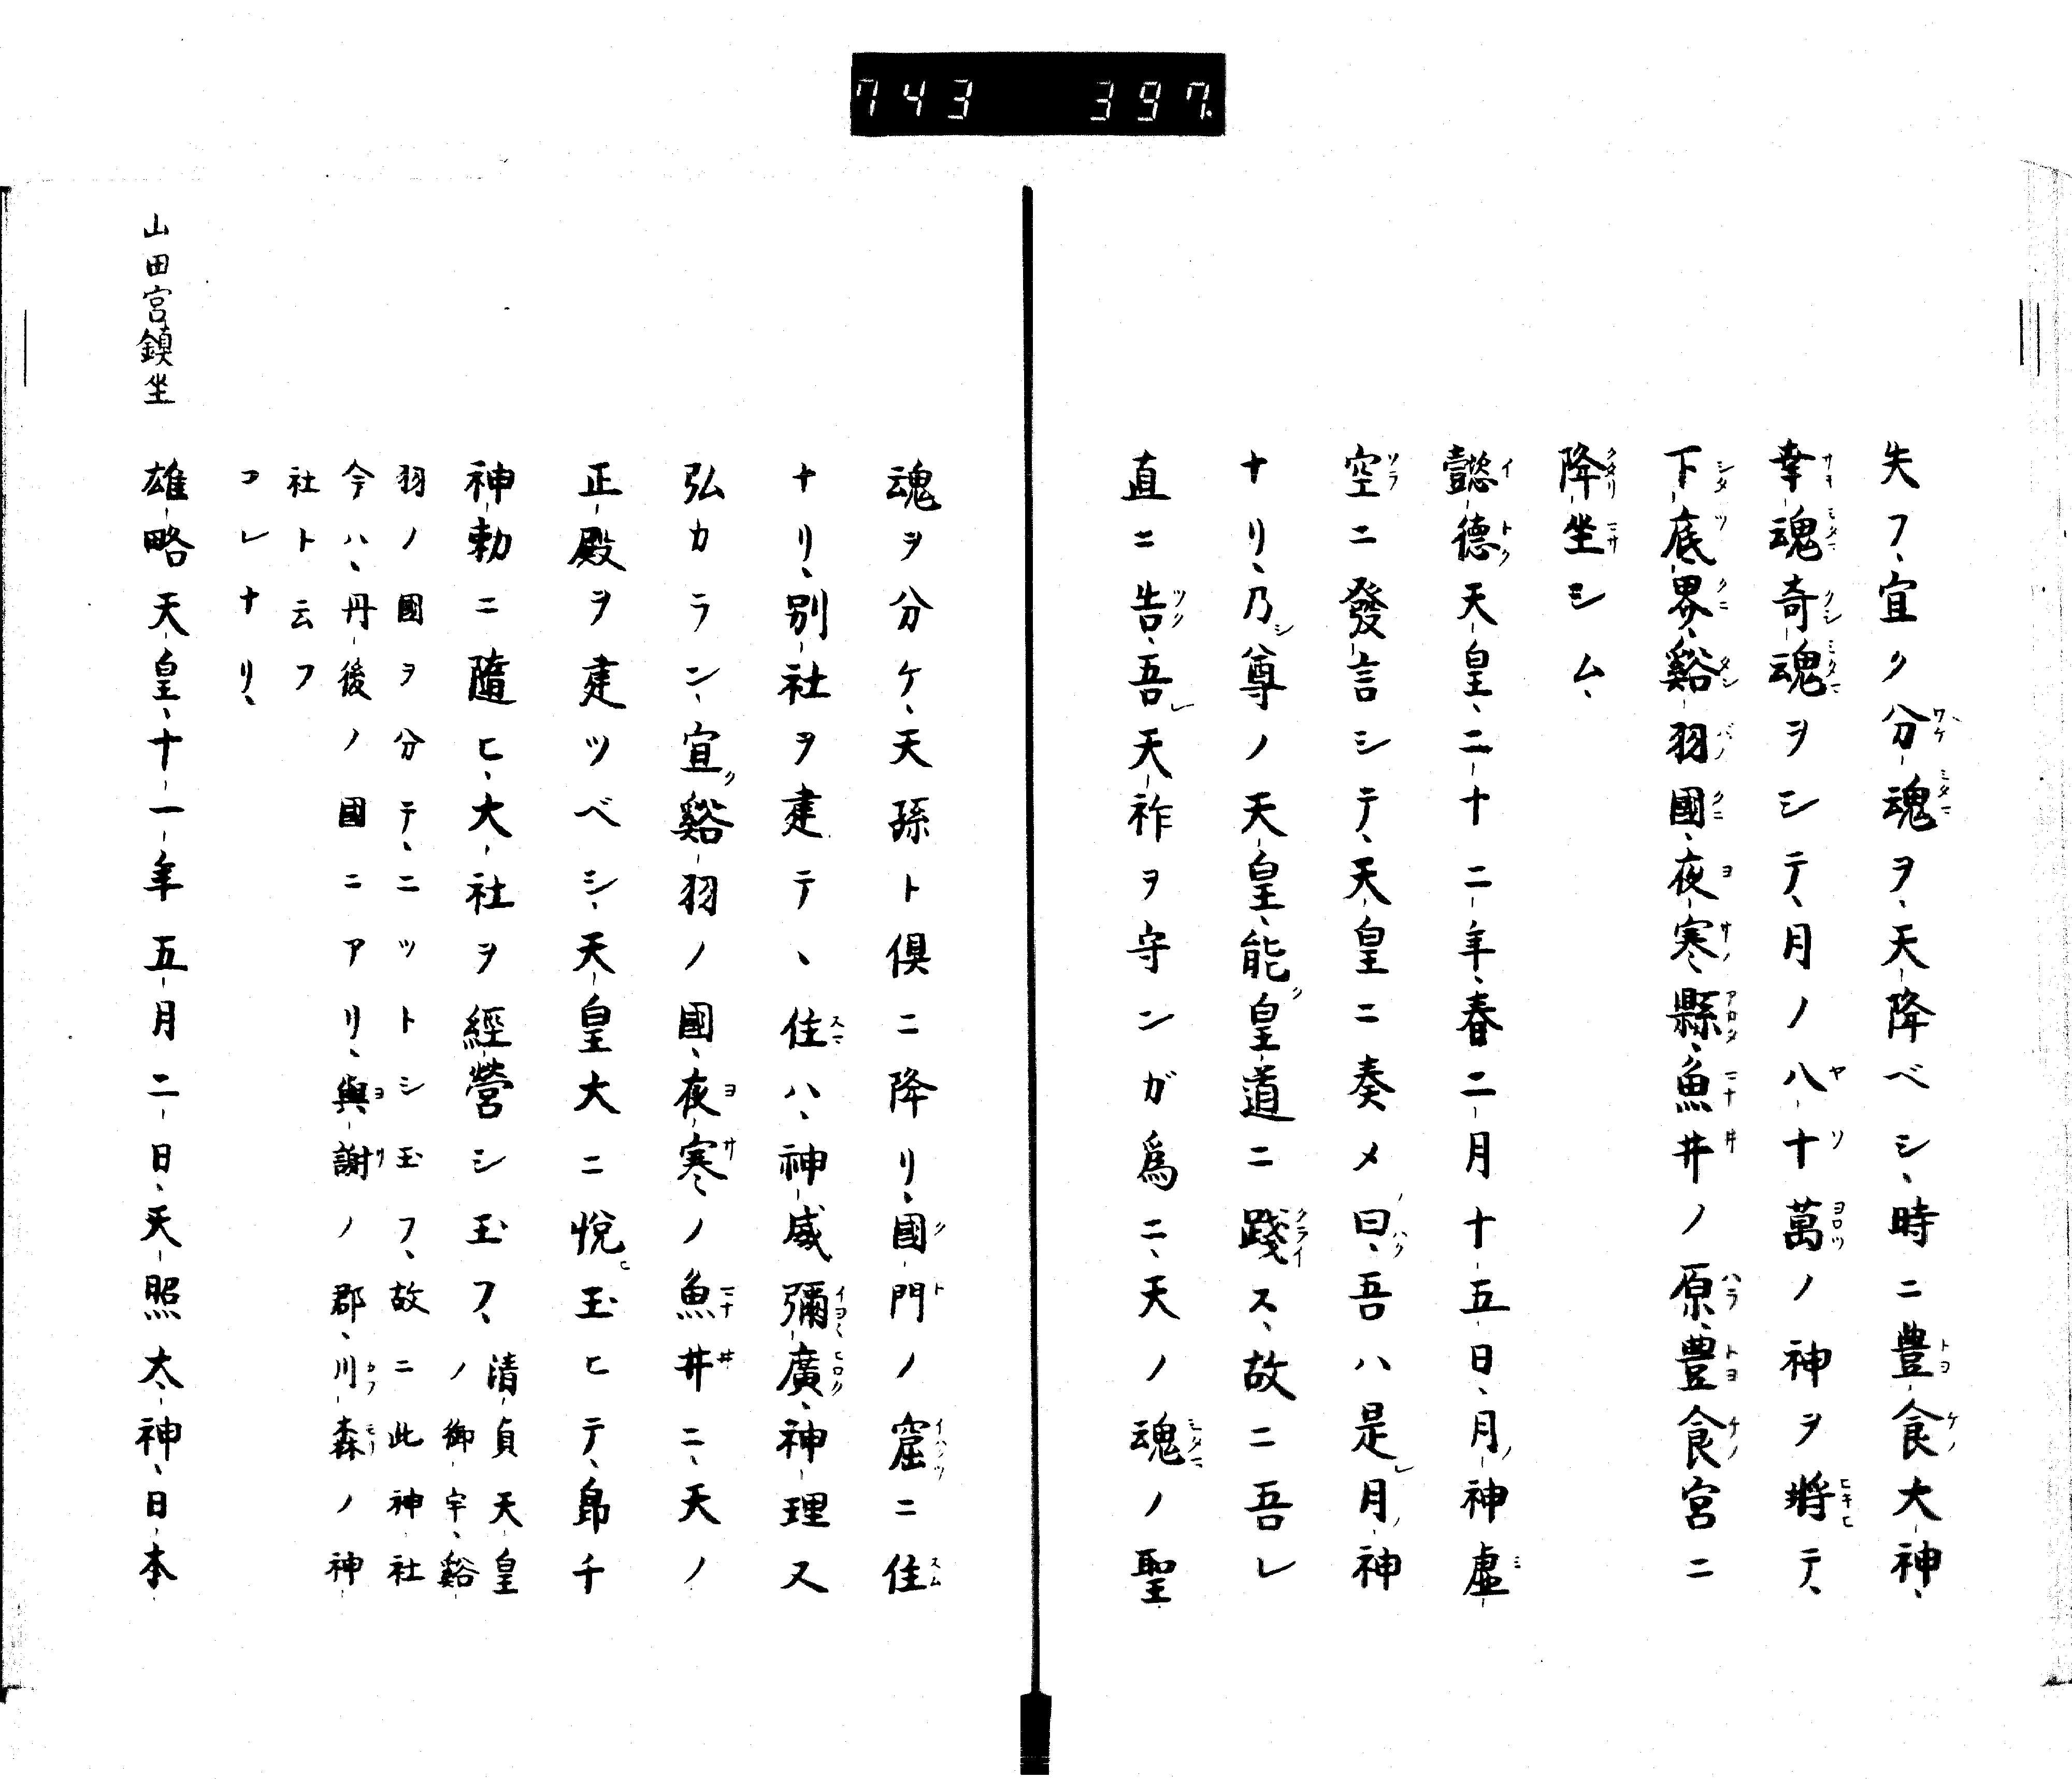 743 397
失フ、宜ク分魂ヲ、天降ベシ、時ニ豊食大神、
幸魂奇魂ヲシテ、月ノ八十萬ノ神ヲ將テ、
下底界、谿羽國、夜寒、縣、魚井ノ原、豊食宮ニ
降坐シム、
懿德天皇、二十二年、春二月十五日、月神虛
空ニ發言シテ、天皇ニ奏メ曰、吾ハ是月神
ナリ、乃尊ノ天皇、能皇道ニ踐ス、故ニ吾レ
直ニ告、吾天祚ヲ守ンガ爲ニ、天ノ魂ノ聖
魂ヲ分ケ、天孫ト俱ニ降リ、國門ノ窟ニ住
ナリ、別社ヲ建テ、住ハ、神威彌廣、神理ス
弘カラン、宜谿羽ノ國、夜寒ノ魚井ニ、天ノ
正殿ヲ建ツベシ、天皇大ニ悅玉ヒテ、帛千
神勅ニ隨ヒ、大社ヲ經營シ玉フ、清貞天皇
ノ御宇、谿
羽ノ國ヲ分テ、ニツトシ玉フ、故ニ此神社
今ハ、丹後ノ國ニアリ、與謝ノ郡、川森ノ神
社ト云フ
コレナリ、
山田宮鎮坐
雄略天皇、十一年五月二日、天照太神、日本